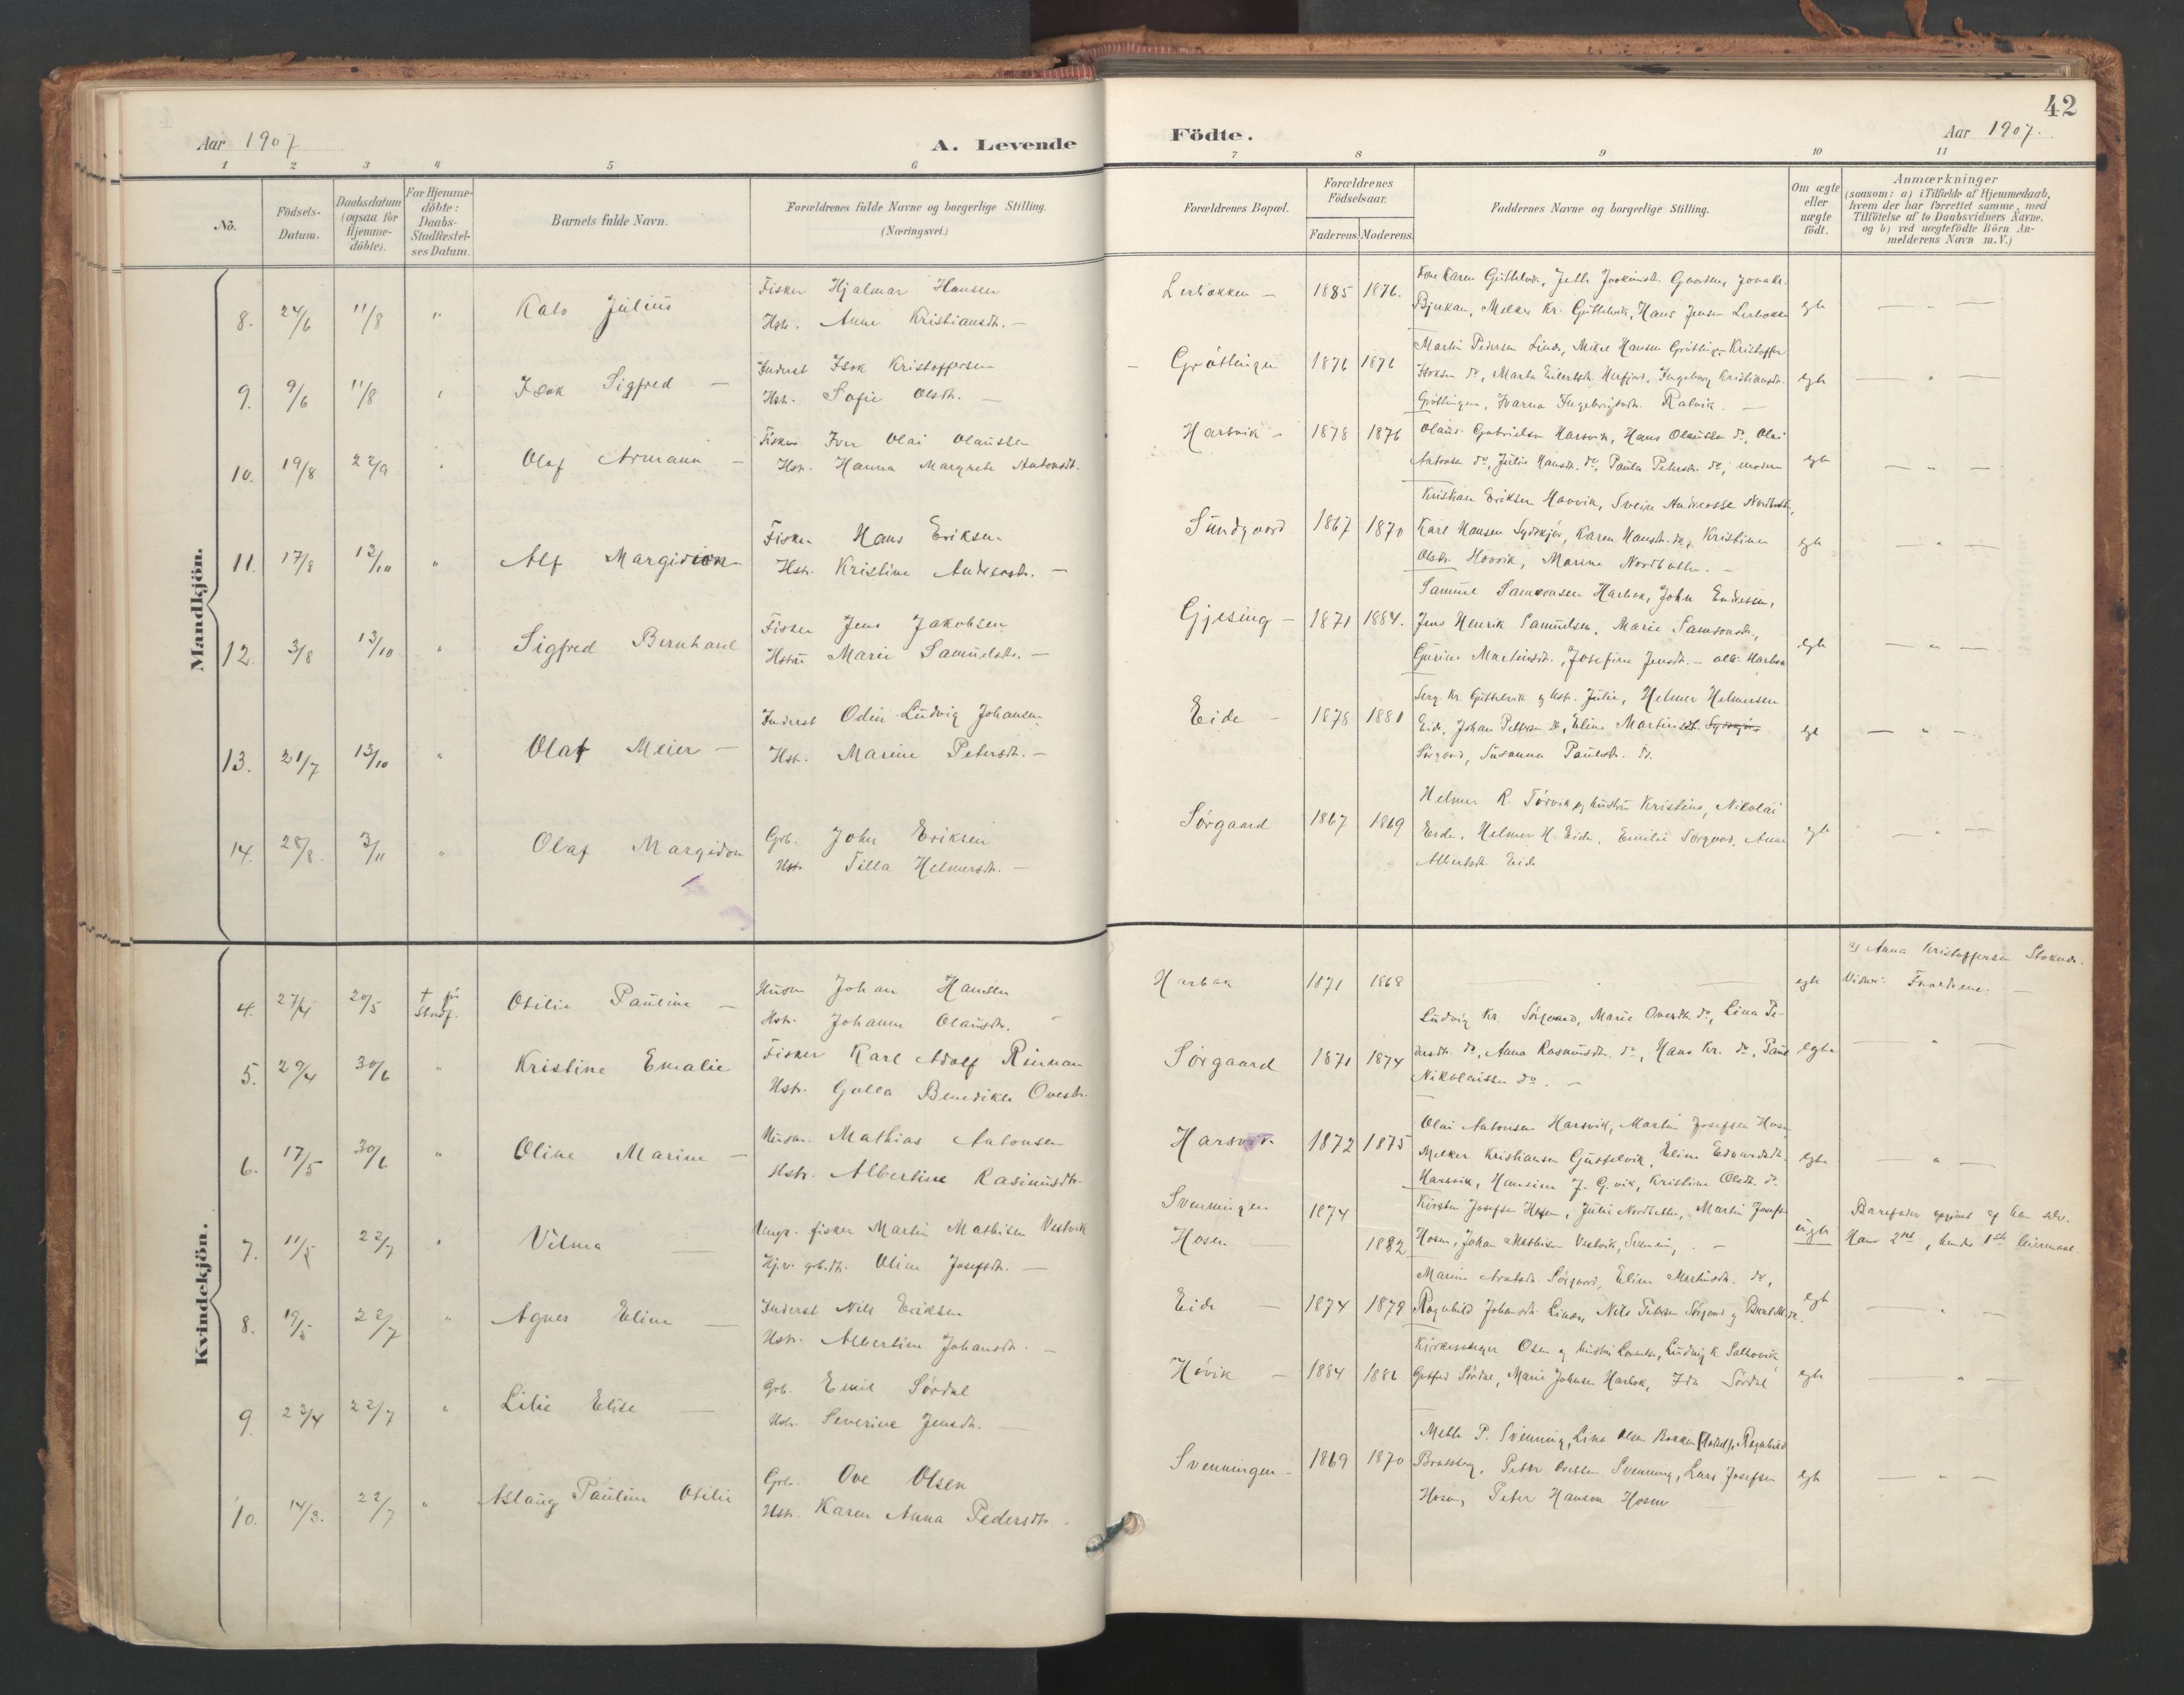 42
Aar 1907
A. Levende
Födte.
Aar 1907.
1 2 3 4 5 6 7 8 9 10 11
No.
Födsels-Datum.
Daabsdatum (ogsaa for Hjemme-döbte).
For Hjemme-döbte: Daabs-Stadfæstel-ses Datum.
Barnets fulde Navn.
Forældrenes fulde Navne og borgerlige Stilling.
(Næringsvei.)
Forældrenes Bopæl.
Forældrenes Födselsaar.
Faderens. Moderens.
Faddernes Navne og borgerlige Stilling.
Om ægte eller uægte födt.
Anmærkninger
(saasom: a) i Tilfælde af Hjemmedaab, hvem der har forrettet samme, med Tilföielse af to Daabsvidners Navne. og b) ved uægtefödte Börn An-melderens Navn m.V.)
Mandkjön.
8. 24/6 11/8 " Kato Julius
Fisker Hjalmar Hansen
Hstr. Anne Kristiansdtr. —
Lerbakken — 1885 1876.
Melker Kr. Guttelvik, Hans Jensen Lerbakken
egte — " —
9. 9/6 11/8 " Isak Sigfred —
Inderst Isak Kristoffersen
Hstr. Sofie Olsdtr. —
Grøttingen 1876 1876
Martin Pedersen Linds, Mikal Hansen Grøttingen, Kristoffer
Isaksen do, Marta Eilertsdtr. Herfjord, Ingeborg Kristiansdtr.
Grøttingen, Ingebrigtsdtr. Ratvik. —
egte — " —
10. 19/8 22/9 " Olaf Armann —
Fisker Iver Olai Olaussen
Hstr. Hanna Margrete Antonsdt.
Harsvik — 1878 1876
Olaus Gabrielsen Harsvik, Hans Olaussen do, Olai
Antonsen do, Julie Hansdt. do, Paula Petersdt. do, moderen
egte — " —
11. 17/8 13/10 " Alf Margidion
Fisker Hans Eriksen
Hstr. Kristine Andreasdtr. —
Sundgaard 1867 1870
Kristian Eriksen Hovvik, Svein Andreasse Nordbotn,
Karl Hansen Sydskjør, Karen Hansdt. do, Kristine
Olsdtr. Hovvik, Marine Nordbotn. —
egte — " —
12. 3/8 13/10 " Sigfred Bernhard
Fisker Jens Jakobsen
Hstru Marie Samuelsdtr. —
Gjesing — 1871 1884.
Samuel Samsonsen Harbak, John Endresen,
Jens Henrik Samuelsen, Marie Samsonsdtr.,
Gurine Martinsdtr., Josefine Jensdt. — alle Harbak
egte — " —
13. 21/7 13/10 " Olaf Meier —
Inderst Odin Ludvig Johansen
Hstr. Marine Petersdt. —
Eide — 1878 1881
Serg. Kr. Guttelvik og hstr. Julie, Helmer Helmersen
Eide, Johan Pettersen do, Eline Martinsdt.
Sørgaard, Susanna Paulsdtr. do.
egt — " —
14. 28/8. 3/11 " Olaf Margidon
Grb. John Eriksen
Hstr. Tilla Helmersdtr. —
Sørgaard 1867 1869
Helmer R. Tørvik og hustru Kristine, Nikolai
Eide, Helmer H. Eide, Emilie Sørgaard, Anne
Albertsdt. Eide
egte — " —
Kvindekjön.
4. 27/4 20/5 † før Stadf. Otilie Pauline —
Husm. Johan Hansen
Hstr. Johanna Olausdtr.
Harbak 1871 1868
egte
a) Anna Kristoffersen Stokund.
Vidner: Forældrene. —
5. 29/4 30/6 " Kristine Emalie
Fisker Karl Adolf Rinnan
Hstr. Golla Benedikte Ovesdtr.
Sørgaard 1871 1874
Ludvig Kr. Sørgaard, Marie Ovesdt. do, Lina Pe-
dersdtr. do, Anna Rasmusdt. do, Hans Kr. do, Paul
Nikolaissen do. —
egte — " —
6. 17/5 30/6 " Oline Marine —
Husm. Mathias Antonsen
Hstr. Albertine Rasmusdtr.
Harsvik 1872 1875
Olai Antonsen Harsvik, Martin Josefsen Hosen
Melker Kristiansen Guttelvik, Eline Edvardsdt.
Harsvik, Hansine J. G.vik, Kristine Olsdt. do.
egte — " —
7. 11/5 22/7 " Vilma
Ungk. fisker Martin Mathisen Vestvik
Hj.v. grb.dtr. Oline Josefsdt. —
Svenningen 1874
Hosen — 1882
Kirsten Josefsen Hosen, Julie Nordbotn, Martin Josefs
Hosen, Johan Mathisen Vestvik, — uegte
Barnefader opgivet af ham selv.
Hans 2net, hendes 1ste leiermaal.
8. 19/5 22/7 " Agnes Eline —
Inderst Nils Eriksen
Hstr. Albertine Johansdt. —
Eide — 1874 1879
Marine Arntsdt. Sørgaard, Eline Martinsdt. do,
Ragnhild Johansdt. Linds, Nils Petersen Sørgaard og do.
egt — " —
9. 23/4 22/7 " Lilie Elise —
Grb. Emil Sørdal
Hstr. Severine Jensdt. —
Høvik — 1884 1881
Kirkesanger Osen og hustru Ludvig K. Sætervik
Gotfred Sørdal, Marie Johnsen Harbak, Ida Sørdal
egte — " —
10. 14/3. 22/7 " Aslaug Pauline Otilie
Grb. Ove Olsen
Hstr. Karen Anna Pedersdtr. —
Svenningen — 1869 1870
Mette P. Svenning, Lina Olsen Bakken, Ragnhild
Bratsberg, Peter Svenning, Lars Josefsen
Hosen, Peter Hansen Hosen
egte — " —